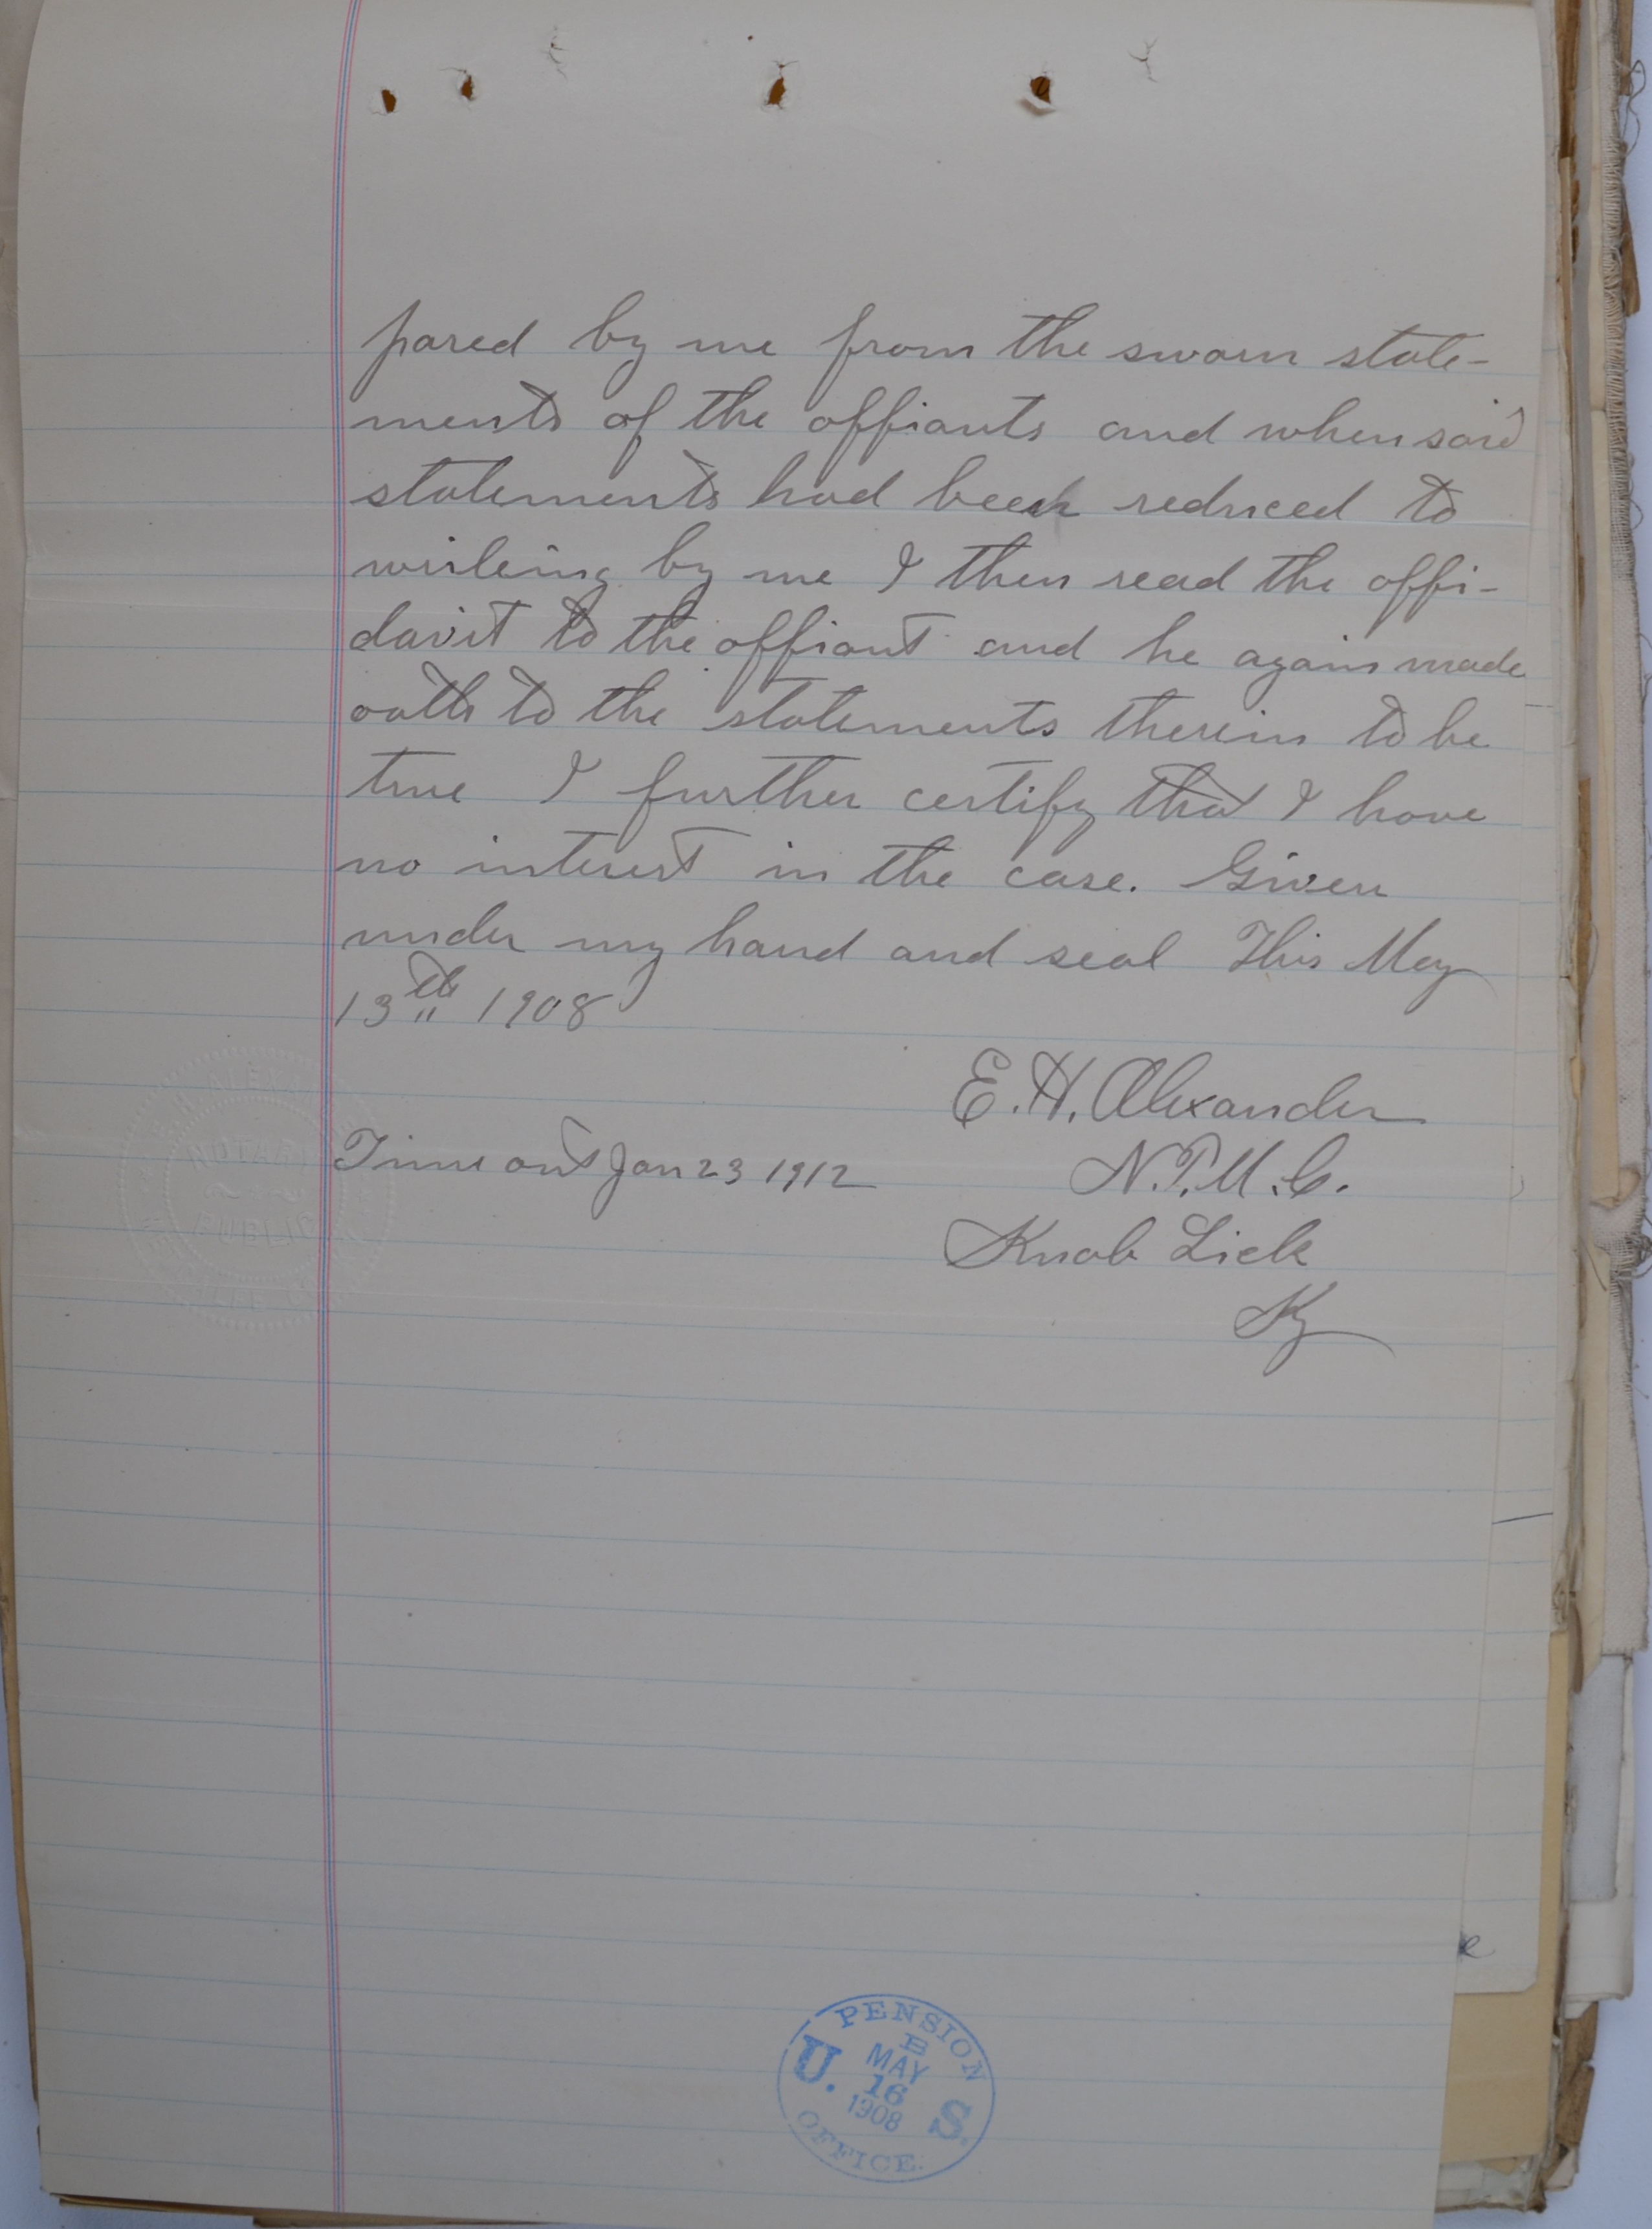 pared by me from the sworn state-
ments of the affiants and when said
statements had been reduced to
writeing by me I then read the affi-
davit to the affiant and he again made
oath to the statements therein to be
true I further certify that I have
no interest in the case. Given
under my hand and seal This May
13th 1908
E. H. Alexander
Time out Jan 23 1912
N.P.M.C.
Knob Lick
Ky
H. ALEXANDER
NOTARY
PUBLIC
PENSION
B
MAY
16
1908
U. S.
OFFICE.